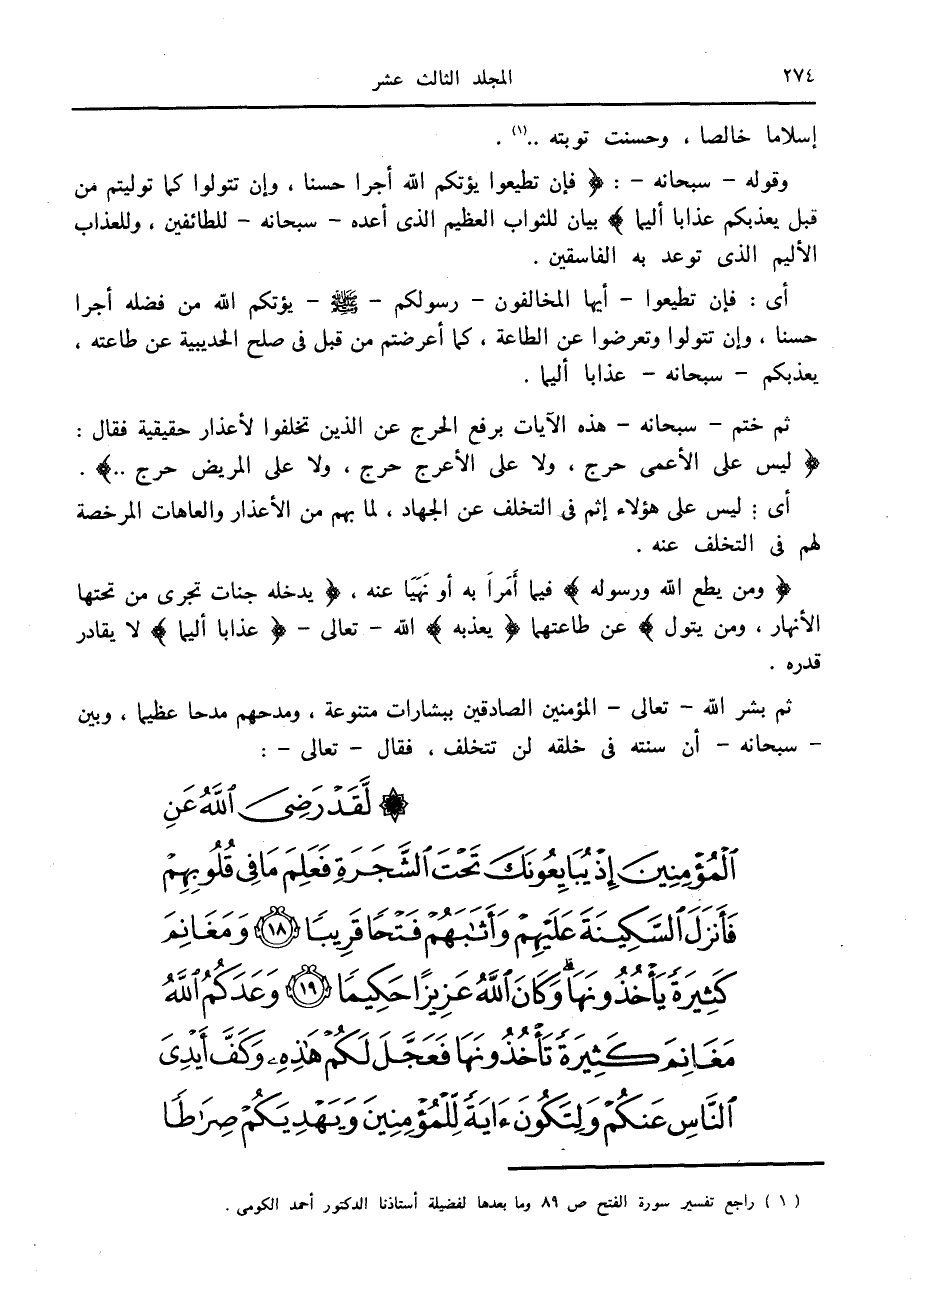 ٢٧٤
المجلد الثالث عشر
إسلاما خالصا ، وحسنت توبته ..(١) .
وقوله - سبحانه - : ﴿ فإن تطيعوا يؤتكم الله أجرا حسنا ، وإن تتولوا كما توليتم من
قبل يعذبكم عذابا أليما ﴾ بيان للثواب العظيم الذى أعده - سبحانه - للطائفين ، وللعذاب
الأليم الذى توعد به الفاسقين .
أى : فإن تطيعوا - أيها المخالفون - رسولكم - ﷺ - يؤتكم الله من فضله أجرا
حسنا ، وإن تتولوا وتعرضوا عن الطاعة ، كما أعرضتم من قبل فى صلح الحديبية عن طاعته ،
يعذبكم - سبحانه - عذابا أليما .
ثم ختم - سبحانه - هذه الآيات برفع الحرج عن الذين تخلفوا لأعذار حقيقية فقال :
﴿ ليس على الأعمى حرج ، ولا على الأعرج حرج ، ولا على المريض حرج ..﴾ .
أى : ليس على هؤلاء إثم فى التخلف عن الجهاد ، لما بهم من الأعذار والعاهات المرخصة
لهم فى التخلف عنه .
﴿ ومن يطع الله ورسوله ﴾ فيما أَمَراَ به أو نَهَيَا عنه ، ﴿ يدخله جنات تجرى من تحتها
الأنهار ، ومن يتول ﴾ عن طاعتهما ﴿ يعذبه ﴾ الله - تعالى - ﴿ عذابا أليما ﴾ لا يقادر
قدره .
ثم بشر الله - تعالى - المؤمنين الصادقين ببشارات متنوعة ، ومدحهم مدحا عظيما ، وبين
- سبحانه - أن سنته فى خلقه لن تتخلف ، فقال - تعالى - :
۞ لَّقَدْ رَضِىَ ٱللَّهُ عَنِ
ٱلْمُؤْمِنِينَ إِذْ يُبَايِعُونَكَ تَحْتَ ٱلشَّجَرَةِ فَعَلِمَ مَا فِى قُلُوبِهِمْ
فَأَنزَلَ ٱلسَّكِينَةَ عَلَيْهِمْ وَأَثَٰبَهُمْ فَتْحًا قَرِيبًا ١٨ وَمَغَانِمَ
كَثِيرَةً يَأْخُذُونَهَا ۗ وَكَانَ ٱللَّهُ عَزِيزًا حَكِيمًا ١٩ وَعَدَكُمُ ٱللَّهُ
مَغَانِمَ كَثِيرَةً تَأْخُذُونَهَا فَعَجَّلَ لَكُمْ هَٰذِهِۦ وَكَفَّ أَيْدِىَ
ٱلنَّاسِ عَنكُمْ وَلِتَكُونَ ءَايَةً لِّلْمُؤْمِنِينَ وَيَهْدِيَكُمْ صِرَٰطًا
( ١ ) راجع تفسير سورة الفتح ص ٨٩ وما بعدها لفضيلة أستاذنا الدكتور أحمد الكومى .